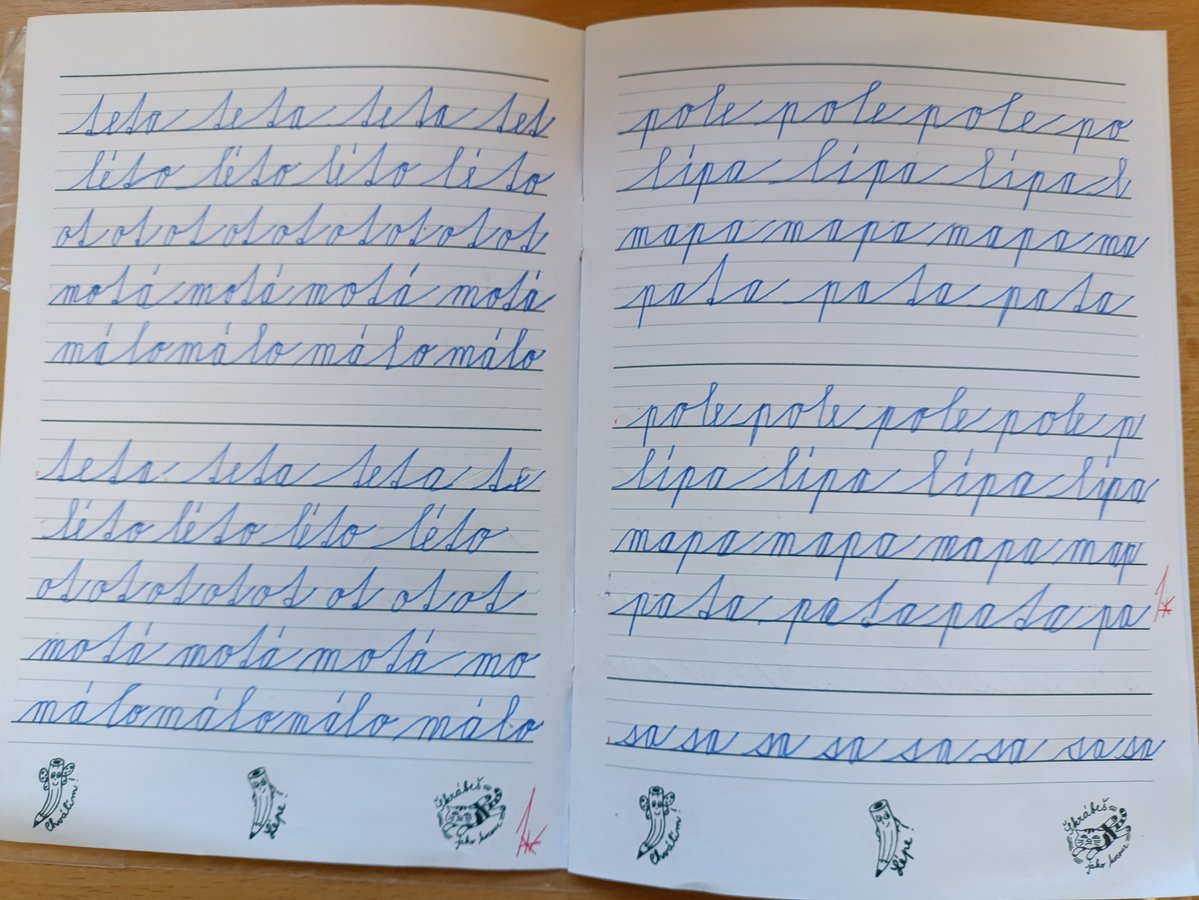 teta teta teta tet
léto léto léto léto
ot ot ot ot ot ot ot ot ot
motá motá motá motá
málo málo málo málo
teta teta teta te
léto léto léto léto
ot ot ot ot ot ot ot ot
motá motá motá mo
málo málo málo málo
Chválím!
Lépe!
Škrábeš
jako kocour
1*
pole pole pole po
lípa lípa lípa l
mapa mapa mapa ma
pata pata pata
pole pole pole pole p
lípa lípa lípa lípa
mapa mapa mapa map
pata pata pata pa
1*
sa sa sa sa sa sa sa sa
Chválím!
Lépe!
Škrábeš
jako kocour